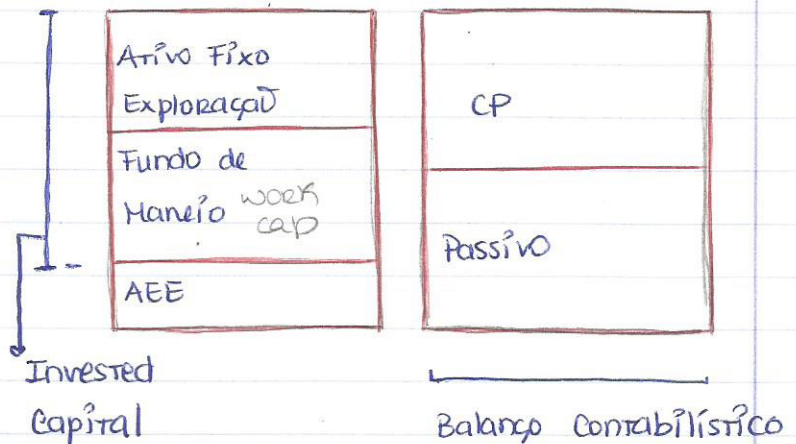 Ativo Fixo
Exploração
Fundo de
Maneio work cap
AEE
CP
Passivo
Invested
Capital
Balanço Contabilístico